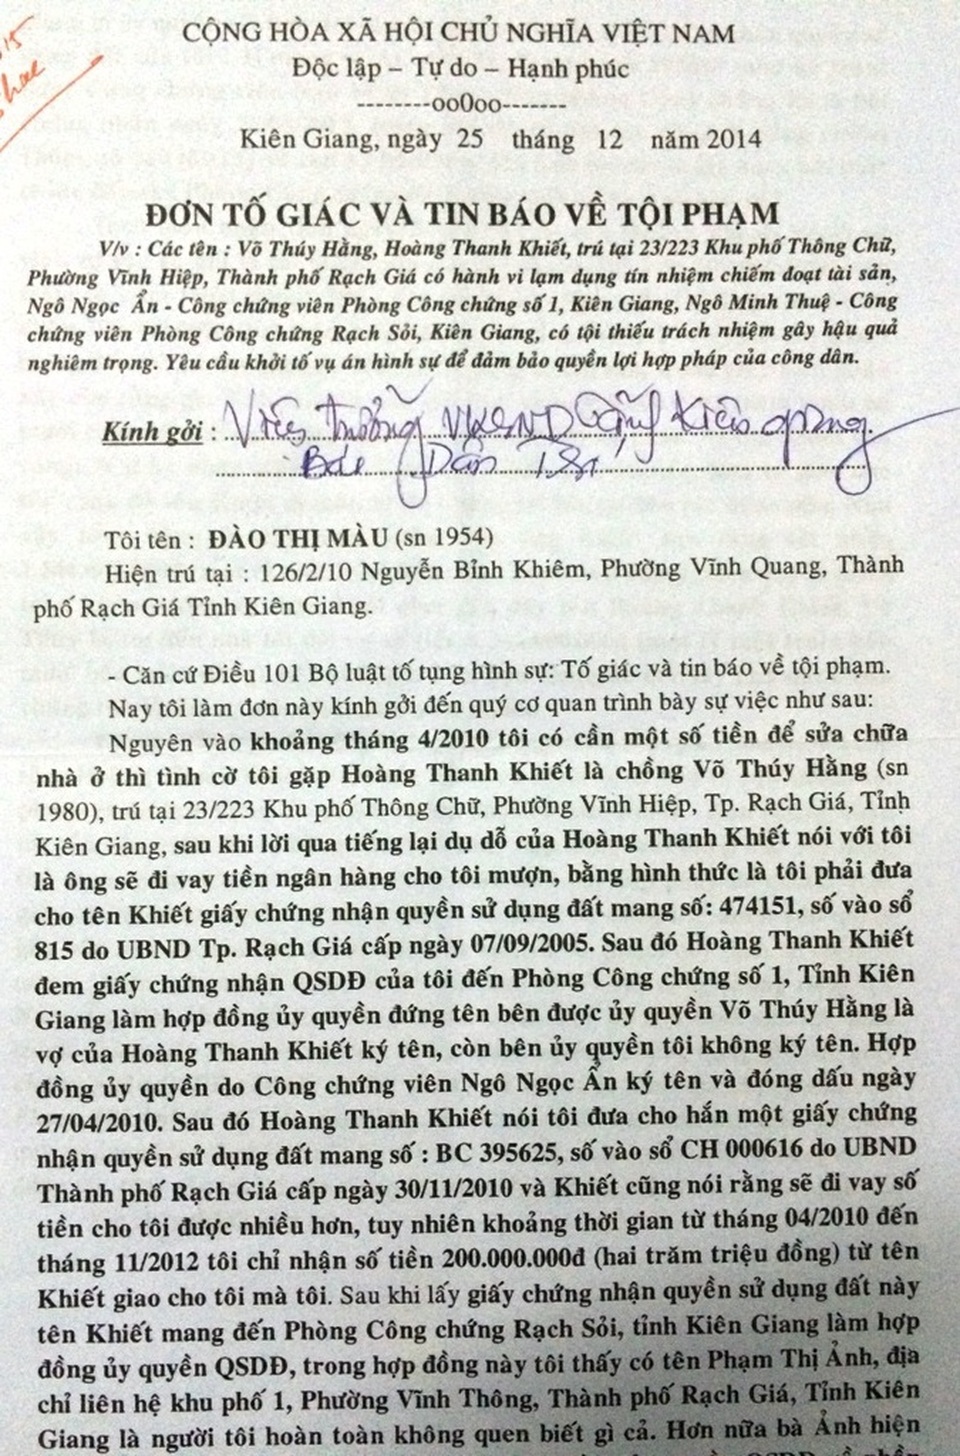 CỘNG HÒA XÃ HỘI CHỦ NGHĨA VIỆT NAM
Độc lập – Tự do – Hạnh phúc
--------oo0oo-------
Kiên Giang, ngày 25 tháng 12 năm 2014
ĐƠN TỐ GIÁC VÀ TIN BÁO VỀ TỘI PHẠM
V/v : Các tên : Võ Thúy Hằng, Hoàng Thanh Khiết, trú tại 23/223 Khu phố Thông Chữ,
Phường Vĩnh Hiệp, Thành phố Rạch Giá có hành vi lạm dụng tín nhiệm chiếm đoạt tài sản,
Ngô Ngọc Ẩn - Công chứng viên Phòng Công chứng số 1, Kiên Giang, Ngô Minh Thuệ - Công
chứng viên Phòng Công chứng Rạch Sỏi, Kiên Giang, có tội thiếu trách nhiệm gây hậu quả
nghiêm trọng. Yêu cầu khởi tố vụ án hình sự để đảm bảo quyền lợi hợp pháp của công dân.
Kính gởi : Viện trưởng VKSND Tỉnh Kiên giang
Báo Dân Trí
Tôi tên : ĐÀO THỊ MÀU (sn 1954)
Hiện trú tại : 126/2/10 Nguyễn Bỉnh Khiêm, Phường Vĩnh Quang, Thành
phố Rạch Giá Tỉnh Kiên Giang.
- Căn cứ Điều 101 Bộ luật tố tụng hình sự: Tố giác và tin báo về tội phạm.
Nay tôi làm đơn này kính gởi đến quý cơ quan trình bày sự việc như sau:
Nguyên vào khoảng tháng 4/2010 tôi có cần một số tiền để sửa chữa
nhà ở thì tình cờ tôi gặp Hoàng Thanh Khiết là chồng Võ Thúy Hằng (sn
1980), trú tại 23/223 Khu phố Thông Chữ, Phường Vĩnh Hiệp, Tp. Rạch Giá, Tỉnh
Kiên Giang, sau khi lời qua tiếng lại dụ dỗ của Hoàng Thanh Khiết nói với tôi
là ông sẽ đi vay tiền ngân hàng cho tôi mượn, bằng hình thức là tôi phải đưa
cho tên Khiết giấy chứng nhận quyền sử dụng đất mang số: 474151, số vào sổ
815 do UBND Tp. Rạch Giá cấp ngày 07/09/2005. Sau đó Hoàng Thanh Khiết
đem giấy chứng nhận QSDĐ của tôi đến Phòng Công chứng số 1, Tỉnh Kiên
Giang làm hợp đồng ủy quyền đứng tên bên được ủy quyền Võ Thúy Hằng là
vợ của Hoàng Thanh Khiết ký tên, còn bên ủy quyền tôi không ký tên. Hợp
đồng ủy quyền do Công chứng viên Ngô Ngọc Ẩn ký tên và đóng dấu ngày
27/04/2010. Sau đó Hoàng Thanh Khiết nói tôi đưa cho hắn một giấy chứng
nhận quyền sử dụng đất mang số : BC 395625, số vào sổ CH 000616 do UBND
Thành phố Rạch Giá cấp ngày 30/11/2010 và Khiết cũng nói rằng sẽ đi vay số
tiền cho tôi được nhiều hơn, tuy nhiên khoảng thời gian từ tháng 04/2010 đến
tháng 11/2012 tôi chỉ nhận số tiền 200.000.000đ (hai trăm triệu đồng) từ tên
Khiết giao cho tôi mà tôi. Sau khi lấy giấy chứng nhận quyền sử dụng đất này
tên Khiết mang đến Phòng Công chứng Rạch Sỏi, tỉnh Kiên Giang làm hợp
đồng ủy quyền QSDĐ, trong hợp đồng này tôi thấy có tên Phạm Thị Ảnh, địa
chỉ liên hệ khu phố 1, Phường Vĩnh Thông, Thành phố Rạch Giá, Tỉnh Kiên
Giang là người tôi hoàn toàn không quen biết gì cả. Hơn nữa bà Ảnh hiện